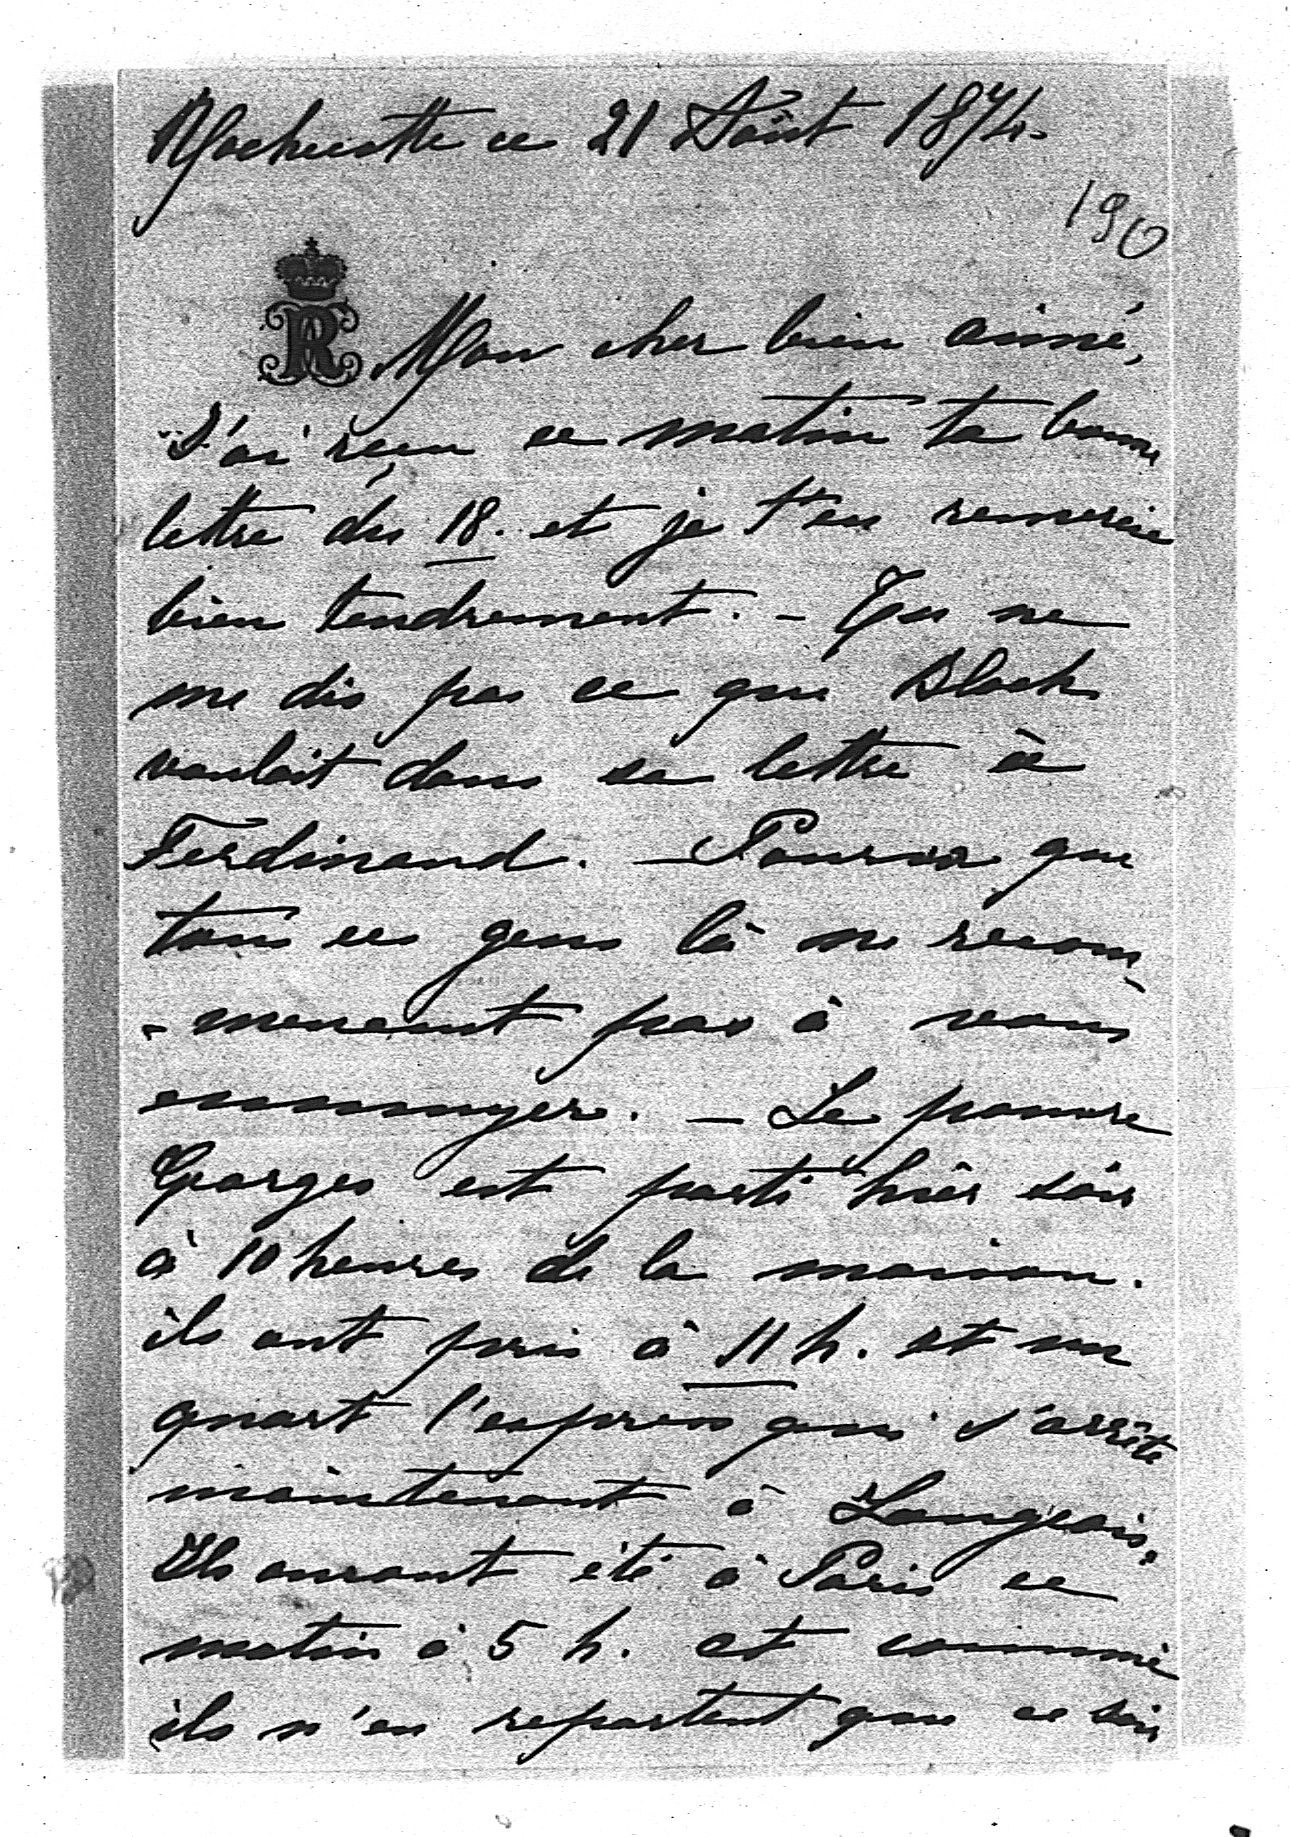 Rochecotte ce 21 Août 1874.
190
R Mon cher bien aimé,
J'ai reçu ce matin ta bonne
lettre du 18. et je t'en remercie
bien tendrement. - Tu ne
me dis pas ce que Block
voulait dans sa lettre à
Ferdinand. - Pourvu que
tous ces gens là ne recom-
-mencent pas à vous
ennuyer. - Le pauvre
Georges est parti hier soir
à 10 heures de la maison.
ils ont pris à 11 h. et un
quart l'express qui s'arrête
maintenant à Langeais.
Ils auront été à Paris ce
matin à 5 h. et comme
ils n'en repartent que ce soir